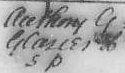 Anthony G
Glasier
S P